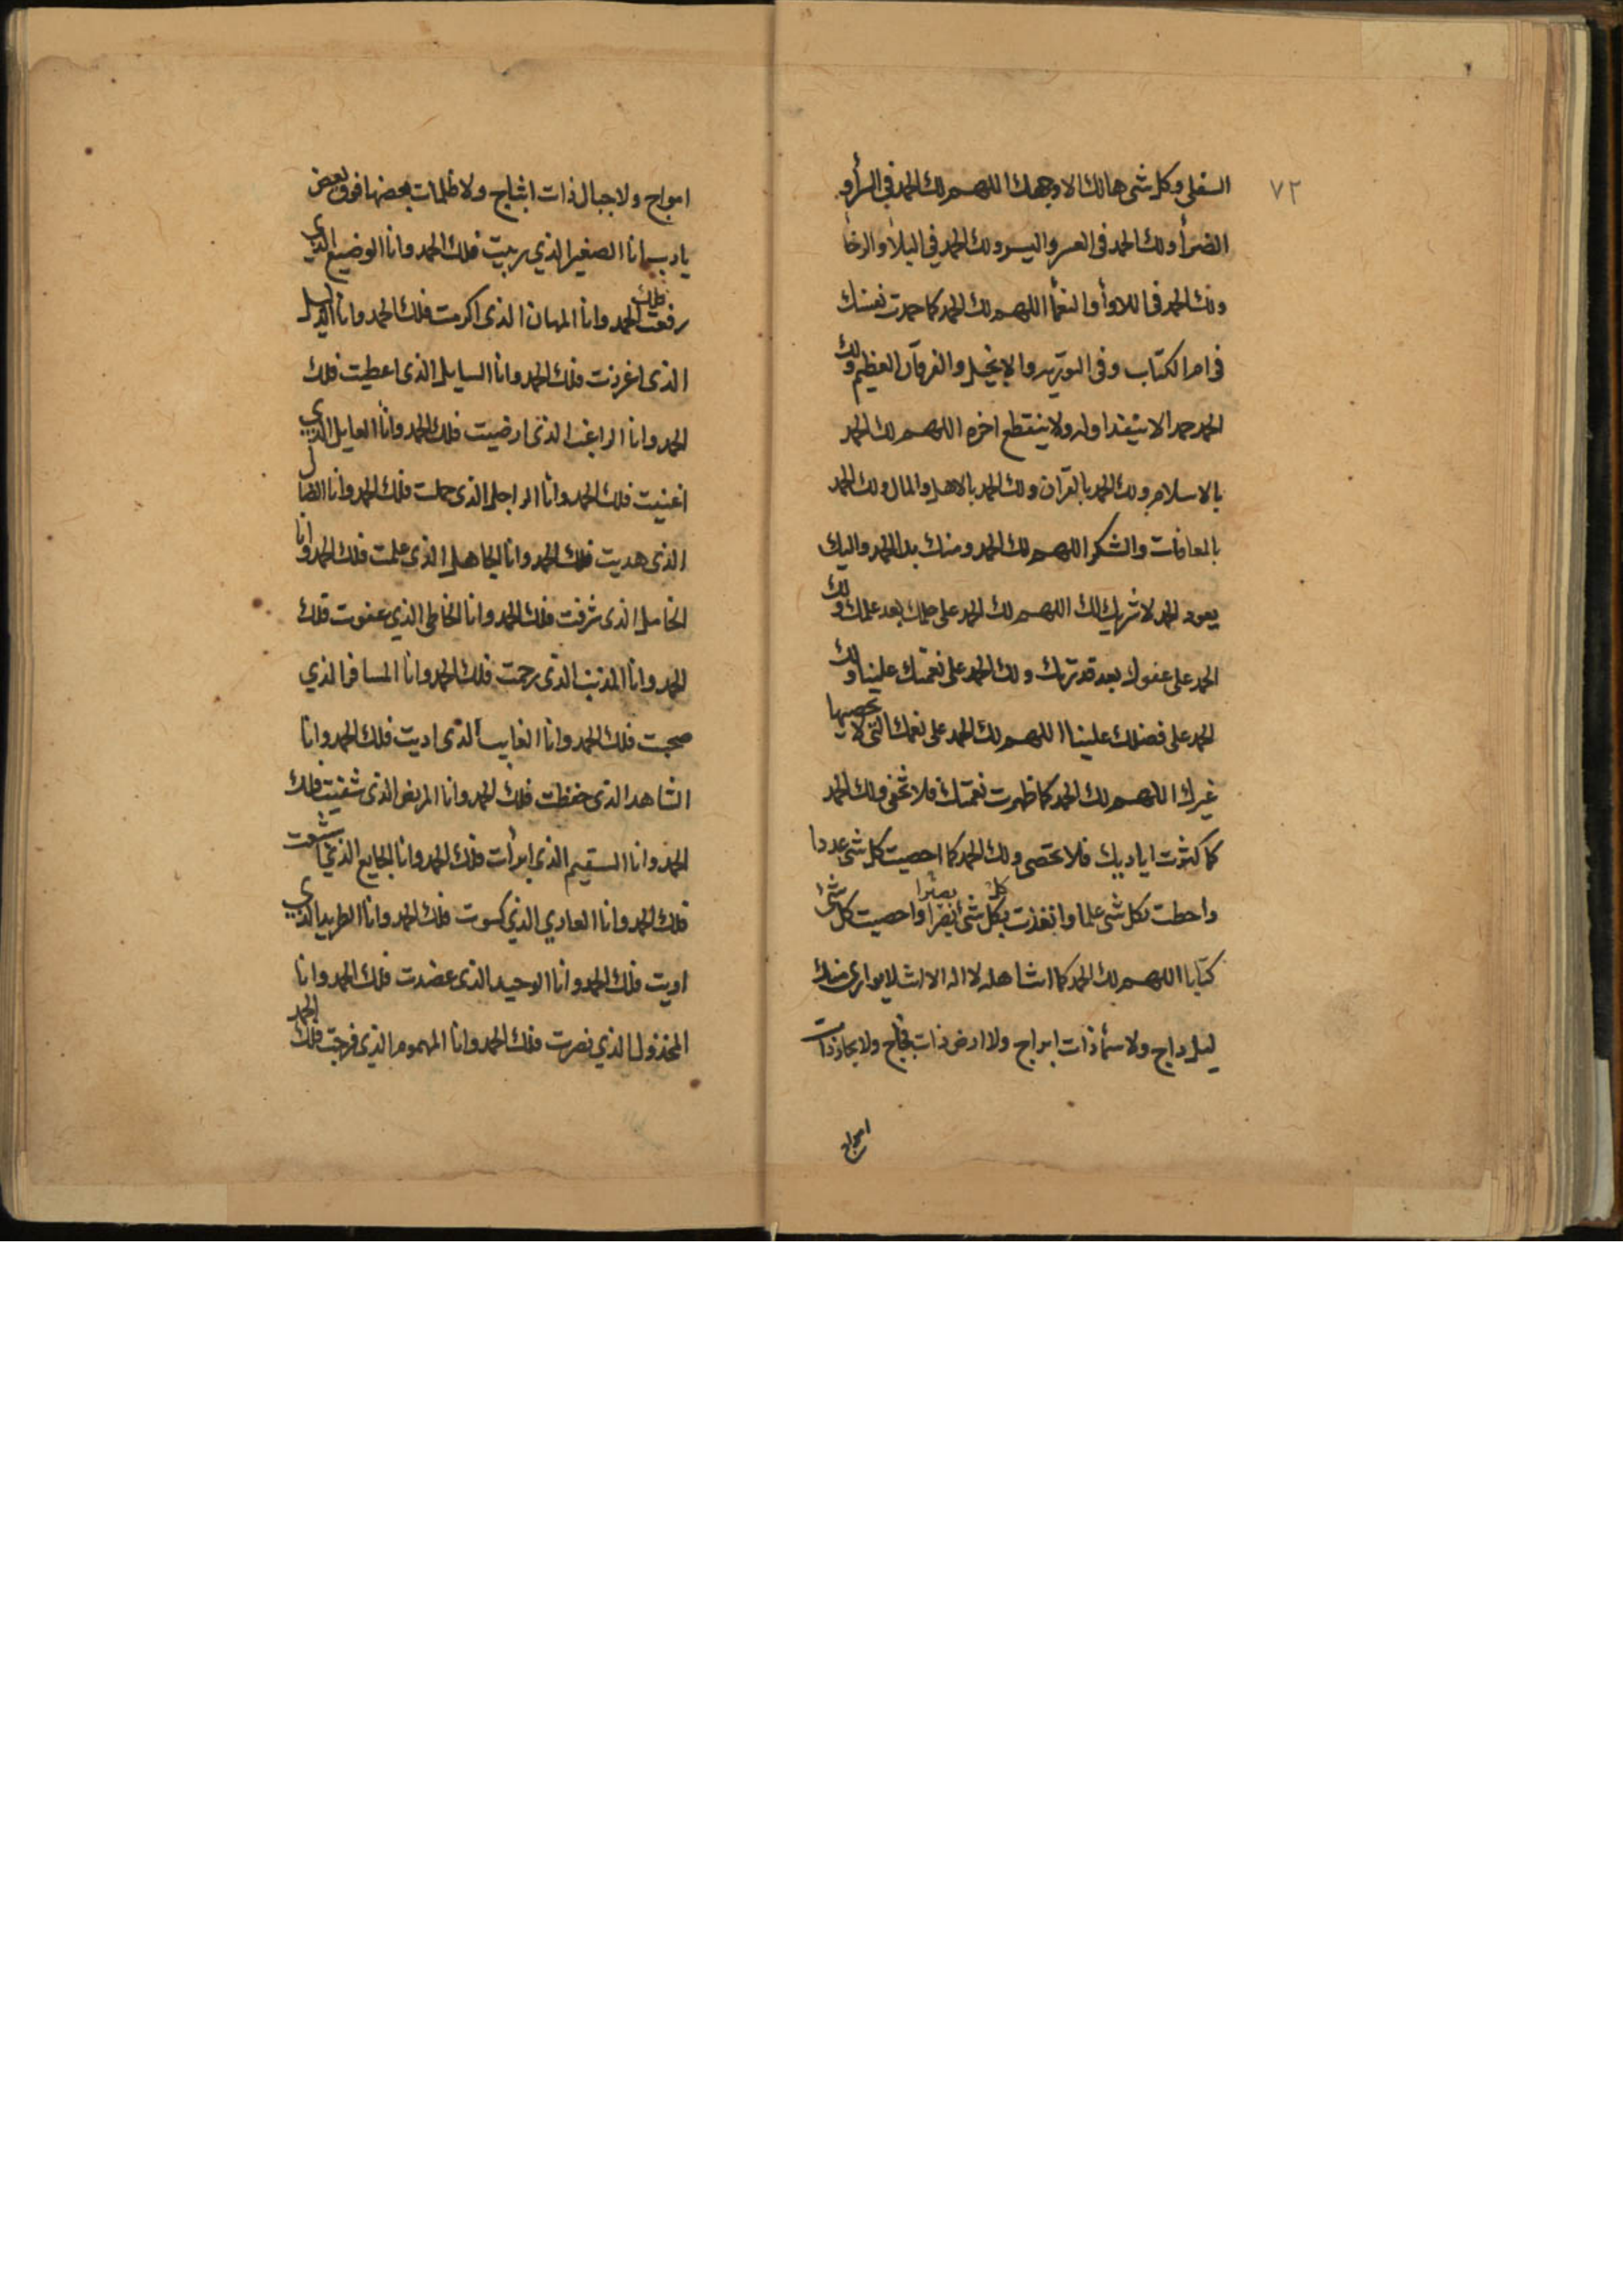 ٧٢
السفلى وكل شى هالك الا وجهك اللهم لك الحمد في السرأ و
الضرأ ولك الحمد فى العسر واليسر ولك الحمد في البلأ والرخأ
ولك الحمد فى اللاوأ والنعمأ اللهم لك الحمد كما حمدت نفسك
فى ام الكتاب وفى التورية والانجيل والفرقان العظيم ولك
الحمد حمدا لا ينفد اوله ولا ينقطع اخره اللهم لك الحمد
بالاسلام ولك الحمد بالقرآن ولك الحمد بالاهل والمال ولك الحمد
بالمعافات والشكر اللهم لك الحمد ومنك بدا الحمد واليك
يعود الحمد لا شريك لك اللهم لك الحمد على حلمك بعد علمك ولك
الحمد على عفوك بعد قدرتك ولك الحمد على نعمتك علينا ولك
الحمد على فضلك علينا اللهم لك الحمد على نعمك التى لا يحصيها
غيرك اللهم لك الحمد كما ظهرت نعمتك فلا تخفى ولك الحمد
كما كثرت اياديك فلا تحصى ولك الحمد كما احصيت كل شى عددا
واحطت بكل شى علما وانفذت بكل شئ بصرا واحصيت كل شئ
كتابا اللهم لك الحمد كما انت اهله لا اله الا انت لا يوارى منك
ليل داج ولا سمأ ذات ابراج ولا ارض ذات فجاج ولا بحار ذات
امواج
امواج ولا جبال ذات اثباج ولا ظلمات بعضها فوق بعض
يا رب انا الصغير الذي ربيت فلك الحمد وانا الوضيع الذي
رفعت فلك الحمد وانا المهان الذى اكرمت فلك الحمد وانا الذليل
الذى اعززت فلك الحمد وانا السايل الذى اعطيت فلك
الحمد وانا الراغب الذى ارضيت فلك الحمد وانا العايل الذي
اغنيت فلك الحمد وانا الراجل الذى حملت فلك الحمد وانا الضال
الذى هديت فلك الحمد وانا الجاهل الذى علمت فلك الحمد وانا
الخامل الذى شرفت فلك الحمد وانا الخاطى الذي عفوت فلك
الحمد وانا المذنب الذى رحمت فلك الحمد وانا المسافر الذي
صحبت فلك الحمد وانا الغايب الذى اديت فلك الحمد وانا
الشاهد الذى حفظت فلك الحمد وانا المريض الذى شفيت فلك
الحمد وانا السقيم الذي ابرأت فلك الحمد وانا الجايع الذي اشبعت
فلك الحمد وانا العاري الذي كسوت فلك الحمد وانا الطريد الذي
اويت فلك الحمد وانا الوحيد الذى عضدت فلك الحمد وانا
المخذول الذي نصرت فلك الحمد وانا المهموم الذي فرجت فلك الحمد